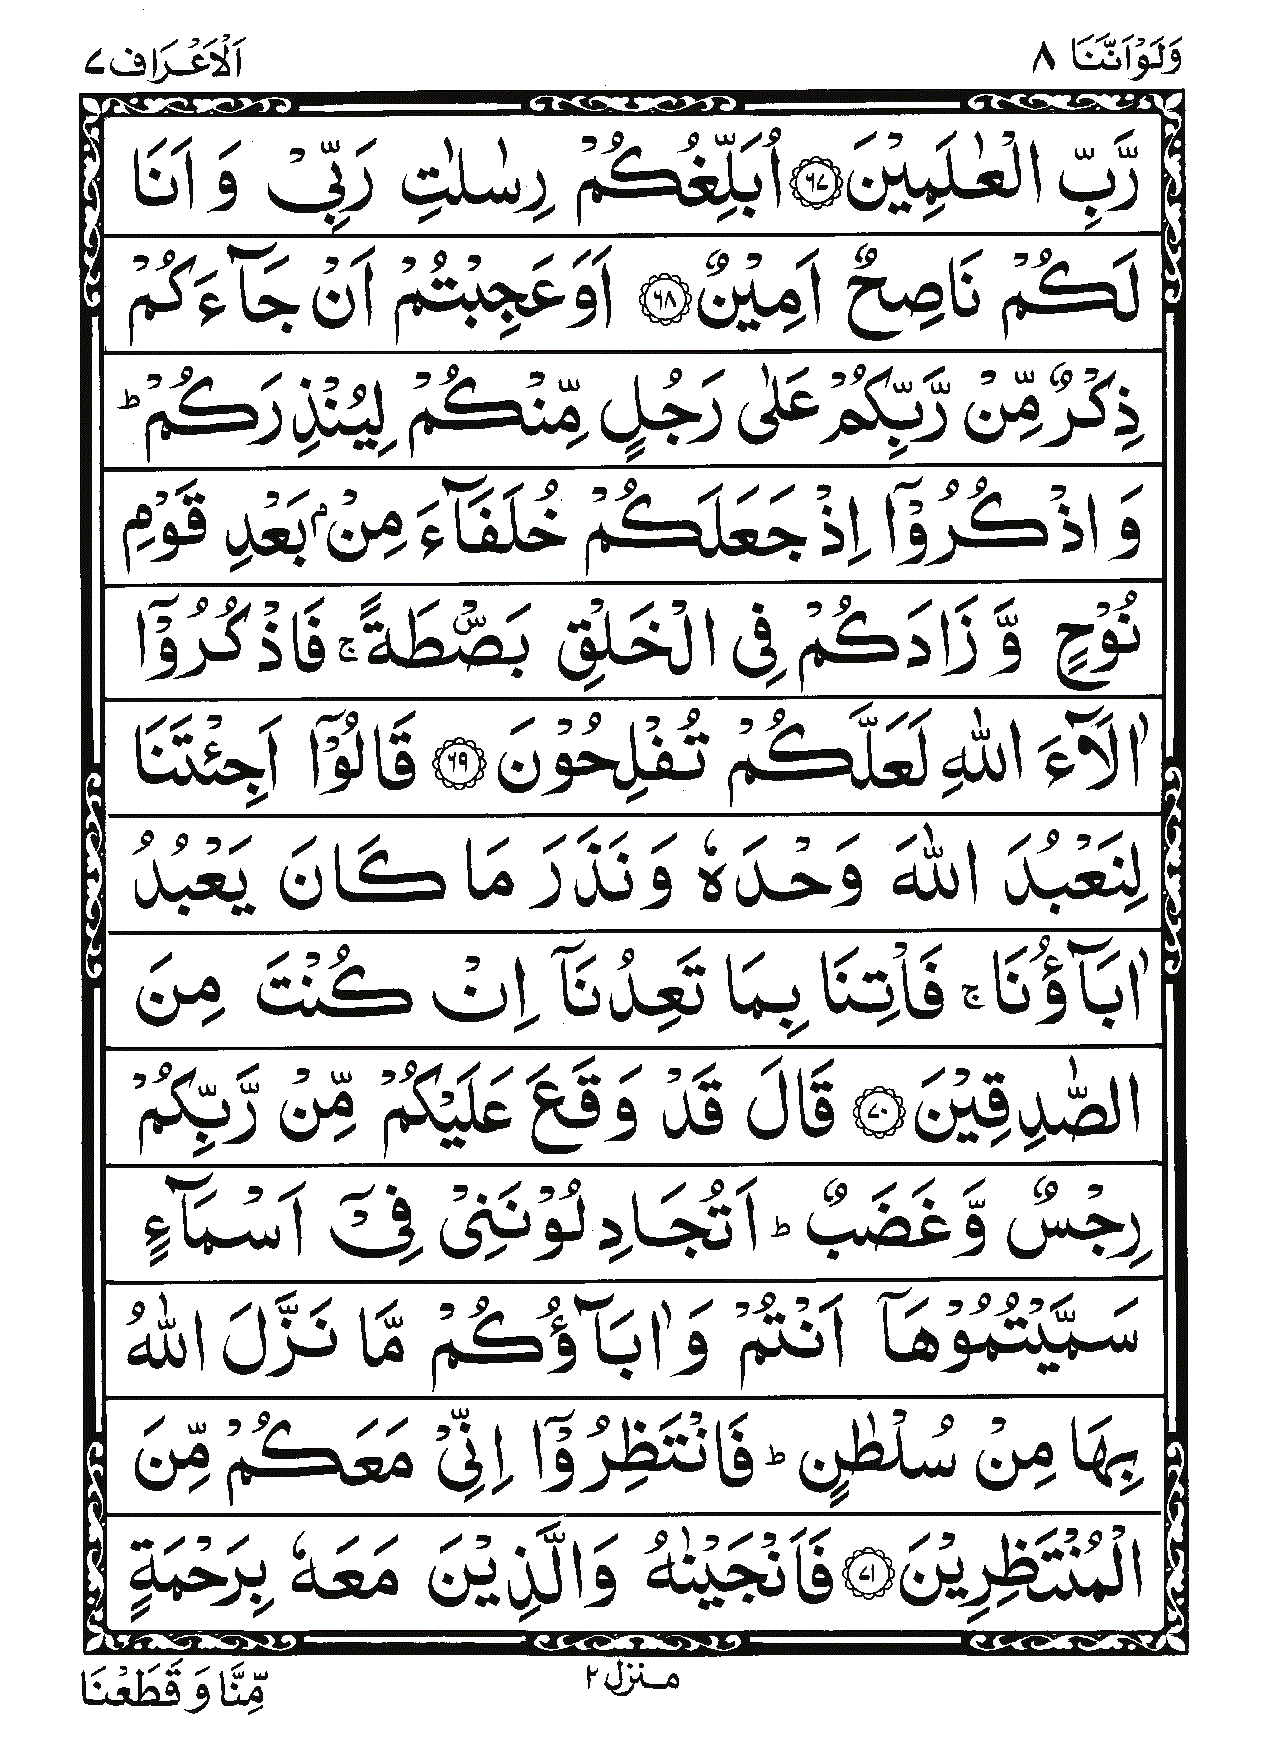 وَلَوْاَنَّنَا ٨
اَلْاَعْرَاف ٧
رَّبِّ الْعٰلَمِيْنَ ﴿٦٧﴾ اُبَلِّغُكُمْ رِسٰلٰتِ رَبِّىْ وَ اَنَا
لَكُمْ نَاصِحٌ اَمِيْنٌ ﴿٦٨﴾ اَوَعَجِبْتُمْ اَنْ جَآءَكُمْ
ذِكْرٌ مِّنْ رَّبِّكُمْ عَلٰى رَجُلٍ مِّنْكُمْ لِيُنْذِرَكُمْ ؕ
وَ اذْكُرُوْۤا اِذْ جَعَلَكُمْ خُلَفَآءَ مِنْۢ بَعْدِ قَوْمِ
نُوْحٍ وَّ زَادَكُمْ فِى الْخَلْقِ بَصْۜطَةً ۚ فَاذْكُرُوْۤا
اٰلَآءَ اللّٰهِ لَعَلَّكُمْ تُفْلِحُوْنَ ﴿٦٩﴾ قَالُوْۤا اَجِئْتَنَا
لِنَعْبُدَ اللّٰهَ وَحْدَهٗ وَ نَذَرَ مَا كَانَ يَعْبُدُ
اٰبَآؤُنَا ۚ فَاْتِنَا بِمَا تَعِدُنَاۤ اِنْ كُنْتَ مِنَ
الصّٰدِقِيْنَ ﴿٧٠﴾ قَالَ قَدْ وَقَعَ عَلَيْكُمْ مِّنْ رَّبِّكُمْ
رِجْسٌ وَّغَضَبٌ ؕ اَتُجَادِلُوْنَنِىْ فِىْۤ اَسْمَآءٍ
سَمَّيْتُمُوْهَاۤ اَنْتُمْ وَ اٰبَآؤُكُمْ مَّا نَزَّلَ اللّٰهُ
بِهَا مِنْ سُلْطٰنٍ ؕ فَانْتَظِرُوْۤا اِنِّىْ مَعَكُمْ مِّنَ
الْمُنْتَظِرِيْنَ ﴿٧١﴾ فَاَنْجَيْنٰهُ وَالَّذِيْنَ مَعَهٗ بِرَحْمَةٍ
منزل ٢
مِّنَّا وَ قَطَعْنَا